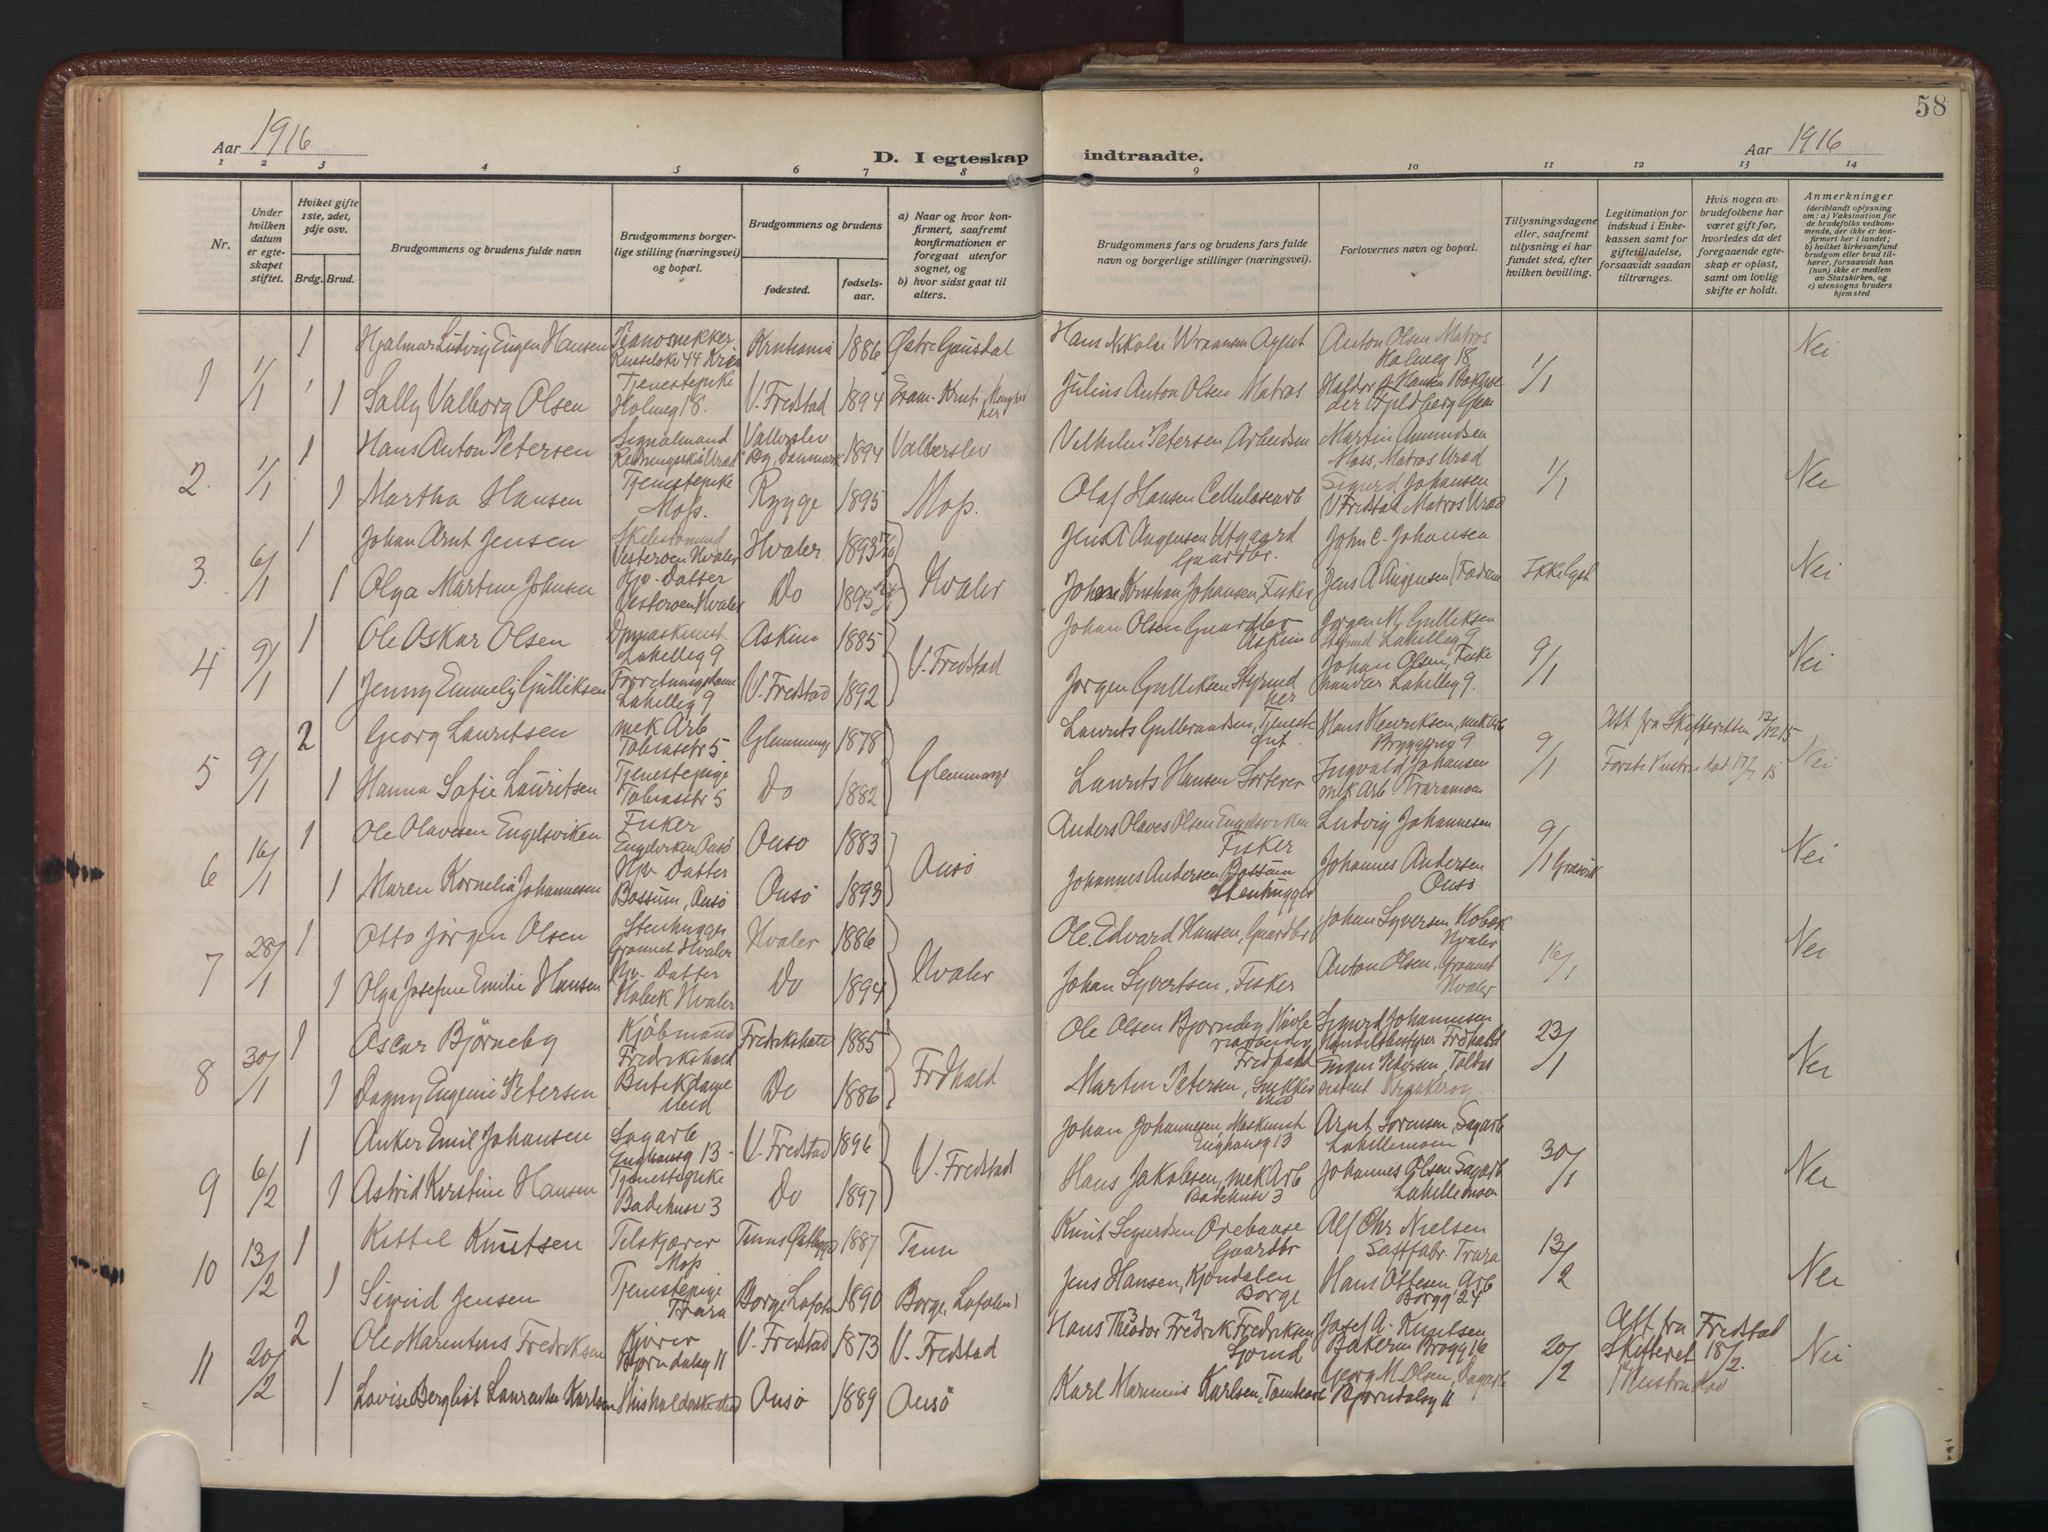 Aar 1916
D. I egteskap indtraadte.
Aar 1916
58
1 2 3 4 5 6 7 8 9 10 11 12 13 14
Nr.
Under hvilken datum er egteskapet stiftet.
Hviket gifte 1ste, 2det, 3dje osv.
Brdg. Brud.
Brudgommens og brudens fulde navn
Brudgommens borgerlige stilling (næringsvei) og bopæl.
Brudgommens og brudens
fødested.
fødselsaar.
a) Naar og hvor konfirmert, saafremt konfirmationen er foregaat utenfor sognet, og
b) hvor sidst gaat til alters.
Brudgommens fars og brudens fars fulde navn og borgerlige stillinger (næringsvei).
Forlovernes navn og bopæl.
Tillysningsdagene eller, saafremt tillysning ei har fundet sted, efter hvilken bevilling.
Legitimation for indskud i Enkekassen samt for giftetilladelse, forsaavidt saadan tiltrænges.
Hvis nogen av brudefolkene har været gift før, hvorledes da det foregaaende egteskap er opløst, samt om lovlig skifte er holdt.
Anmerkninger
(deriblandt oplysning om: a) Vaksination for de brudefolks vedkommende, der ikke er konfirmert her i landet; b) hvilket kirkesamfund brudgom eller brud tilhører, forsaavidt han (hun) ikke er medlem av Statskirken, og c) utensogns bruders hjemsted
1 1/1 1 Hjalmar Ludvig Eugen Hansen Pianosnekker 44 Kria 1886 Østre Gausdal Hans Nikolai Agent Anton Olsen Matros Holmeg 18 1/1 Nei
1 Sally Valborg Olsen Tjenestepike Holmeg 18. V. Fredstad 1894 Julius Anton Olsen Matros
2. 1/1 1 Hans Anton Petersen Signalmand Danmark 1894 Valberslev Vilhelm Petersen Arbeidsm Martin Amundsen Moss, Matros 1/1 Nei
1 Martha Hansen Tjenestepike Moss. Rygge 1895 Moss. Olaf Hansen Cellulosearb Sigurd Johansen V Fredstad Matros
3. 6/1 1 Johan Arnt Jensen Vesterøen Hvaler Hvaler 1893 Hvaler Jens A Angensen Utgaard Gaardbr. John C. Johansen Ikke lyst Nei
1 Olga Martine Johnsen Hjv. Datter Vesterøen Hvaler Do 1895 Johan Kristian Johansen, Fisker Jens A Angensen
4 9/1 1 Ole Oskar Olsen Lahelleg 9 Askim 1885 V. Fredstad Johan Olsen Gaardbr Askim Jørgen M. Gulliksen Lahelleg 9 9/1 Nei
1 Jenny Emmely Gulliksen Forretningsdame Lahelleg 9 V. Fredstad 1892 Jørgen Gulliksen Styrmd her Johan Olsen, Fiskehandler Lahelleg 9.
5 9/1 2 Georg Lauritsen mek Arb Tobiasstr 5 Glemminge 1878 Glemminge Laurits Gulbrandsen, Hans Henriksen, mek Arb 9 9/1 Att fra Skifteretten 17/12 15 Nei
1 Hanna Sofie Lauritsen Tjenestepige Tobiasstr 5 Do 1882 Laurits Hansen Sorterer Ingvald Johansen mek Arb Traramoen Første Hustru død 15
6 16/1 1 Ole Olavesen Engelsviken Fisker Engelsviken Onsø Onsø 1883 Onsø Anders Olaves Olsen Engelsviken Fisker Ludvig Johannesen 9/1 Græsvik Nei
1 Maren Kornelia Johannesen Hjv. Datter Bossum, Onsø Onsø 1893 Johannes Andersen Bossum Stenhugger Johannes Andersen Onsø
7 28/1 1 Otto Jørgen Olsen Stenhugger Hvaler Hvaler 1886 Hvaler Ole Edvard Hansen, Gaardbr Johan Syversen Kobæk Hvaler 16/1 Nei
1 Olga Josefine Emilie Hansen Hjv. Datter Kobæk Hvaler Do 1894 Johan Syvertsen, Fisker Anton Olsen, Hvaler
8 30/1 1 Oscar Bjørneby Kjøbmand Fredrikshald 1885 Frdhald Ole Olsen Bjørneby Frdhald Sigurd Johannesen Handelsbestyrer Frdhald 23/1 Nei
1 Dagny Eugenie Petersen Butikdame Do 1886 Martin Petersen, Snekker
9 6/2 1 Anker Emil Johansen Sagarb Enghausg 13 V. Fredstad 1896 V. Fredstad Johan Johannesen Maskinist Enghausg 13 Arnt Sørensen, Sagarb Lahellemoen 30/1 Nei
1 Astrid Kirstine Hansen Tjenestepike Badehusg 3 Do 1897 Hans Jakobsen, mek Arb Badehusg 3 Johannes Olsen Sagarb Lahellemoen
10 13/2 1 Kittel Knutsen Moss 1887 Tinn Knut Sigurdsen Gaardbr Alf Chr Nielsen Trara 13/2 Nei
1 Sigrid Jensen Tjenestepige Trara Borge, Lofoten 1890 Borge, Lofoten Jens Hansen, Kjøndalen Borge Hans Ottesen, Arb Borgg 24
11 20/2 2 Ole Marentius Fredriksen Kjører Bjørndalsg 11 V. Fredstad 1873 V. Fredstad Hans Theodor Fredrik Fredriksen Sjømd Josef A. Knutsen Bakerm Brogg 16 20/2 Att fra Fredstad Skifteret 18/2. Nei
1 Lovise Bergliot Laurentse Karlsen Onsø 1889 Onsø Karl Marinius Karlsen, Georg M. Olsen, Sagarb Bjørndalsg 11 Hustru død